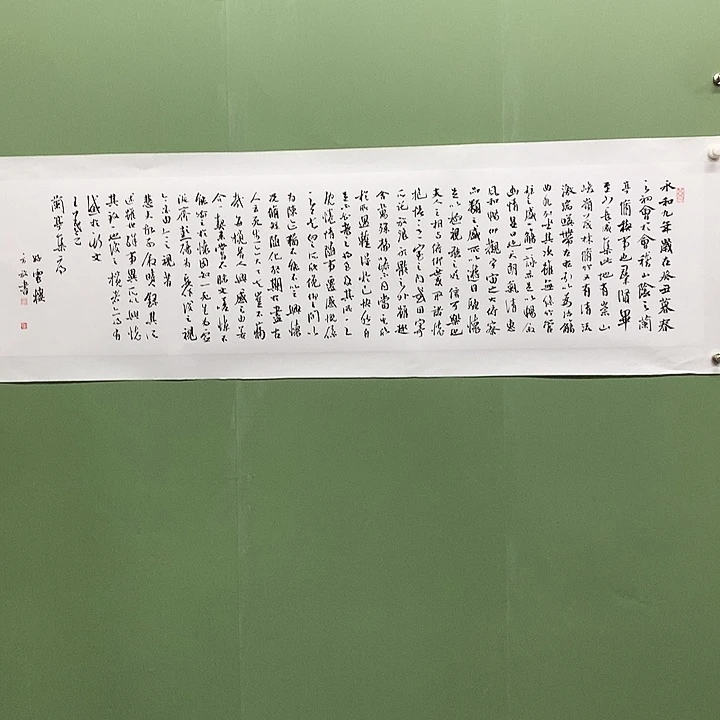 永和九年歲在癸丑暮春
之初會於會稽山陰之蘭
亭脩禊事也羣賢畢
至少長咸集此地有崇山
峻嶺茂林脩竹又有清流
激湍暎帶左右引以為流觴
曲水列坐其次雖無絲竹管
弦之盛一觴一詠亦足以暢敘
幽情是日也天朗氣清惠
風和暢仰觀宇宙之大俯察
品類之盛所以遊目騁懷
足以極視聽之娛信可樂也
夫人之相與俯仰一世或取諸懷
抱悟言一室之內或因寄
所託放浪形骸之外雖趣
舍萬殊靜躁不同當其欣
於所遇暫得於己快然自
足不知老之將至及其所之
既惓情隨事遷感慨係
之矣向之所欣俛仰之間以
為陳迹猶不能不以之興懷
況脩短隨化終期於盡古
人云死生亦大矣豈不痛
哉每攬昔人興感之由若
合一契未嘗不臨文嗟悼不
能喻之於懷固知一死生為虛
誕齊彭殤為妄作後之視
今亦由今之視昔
悲夫故列敘時人錄其所
述雖世殊事異所以興懷
其致一也後之攬者亦將有
感於斯文
王羲之
蘭亭集序
書